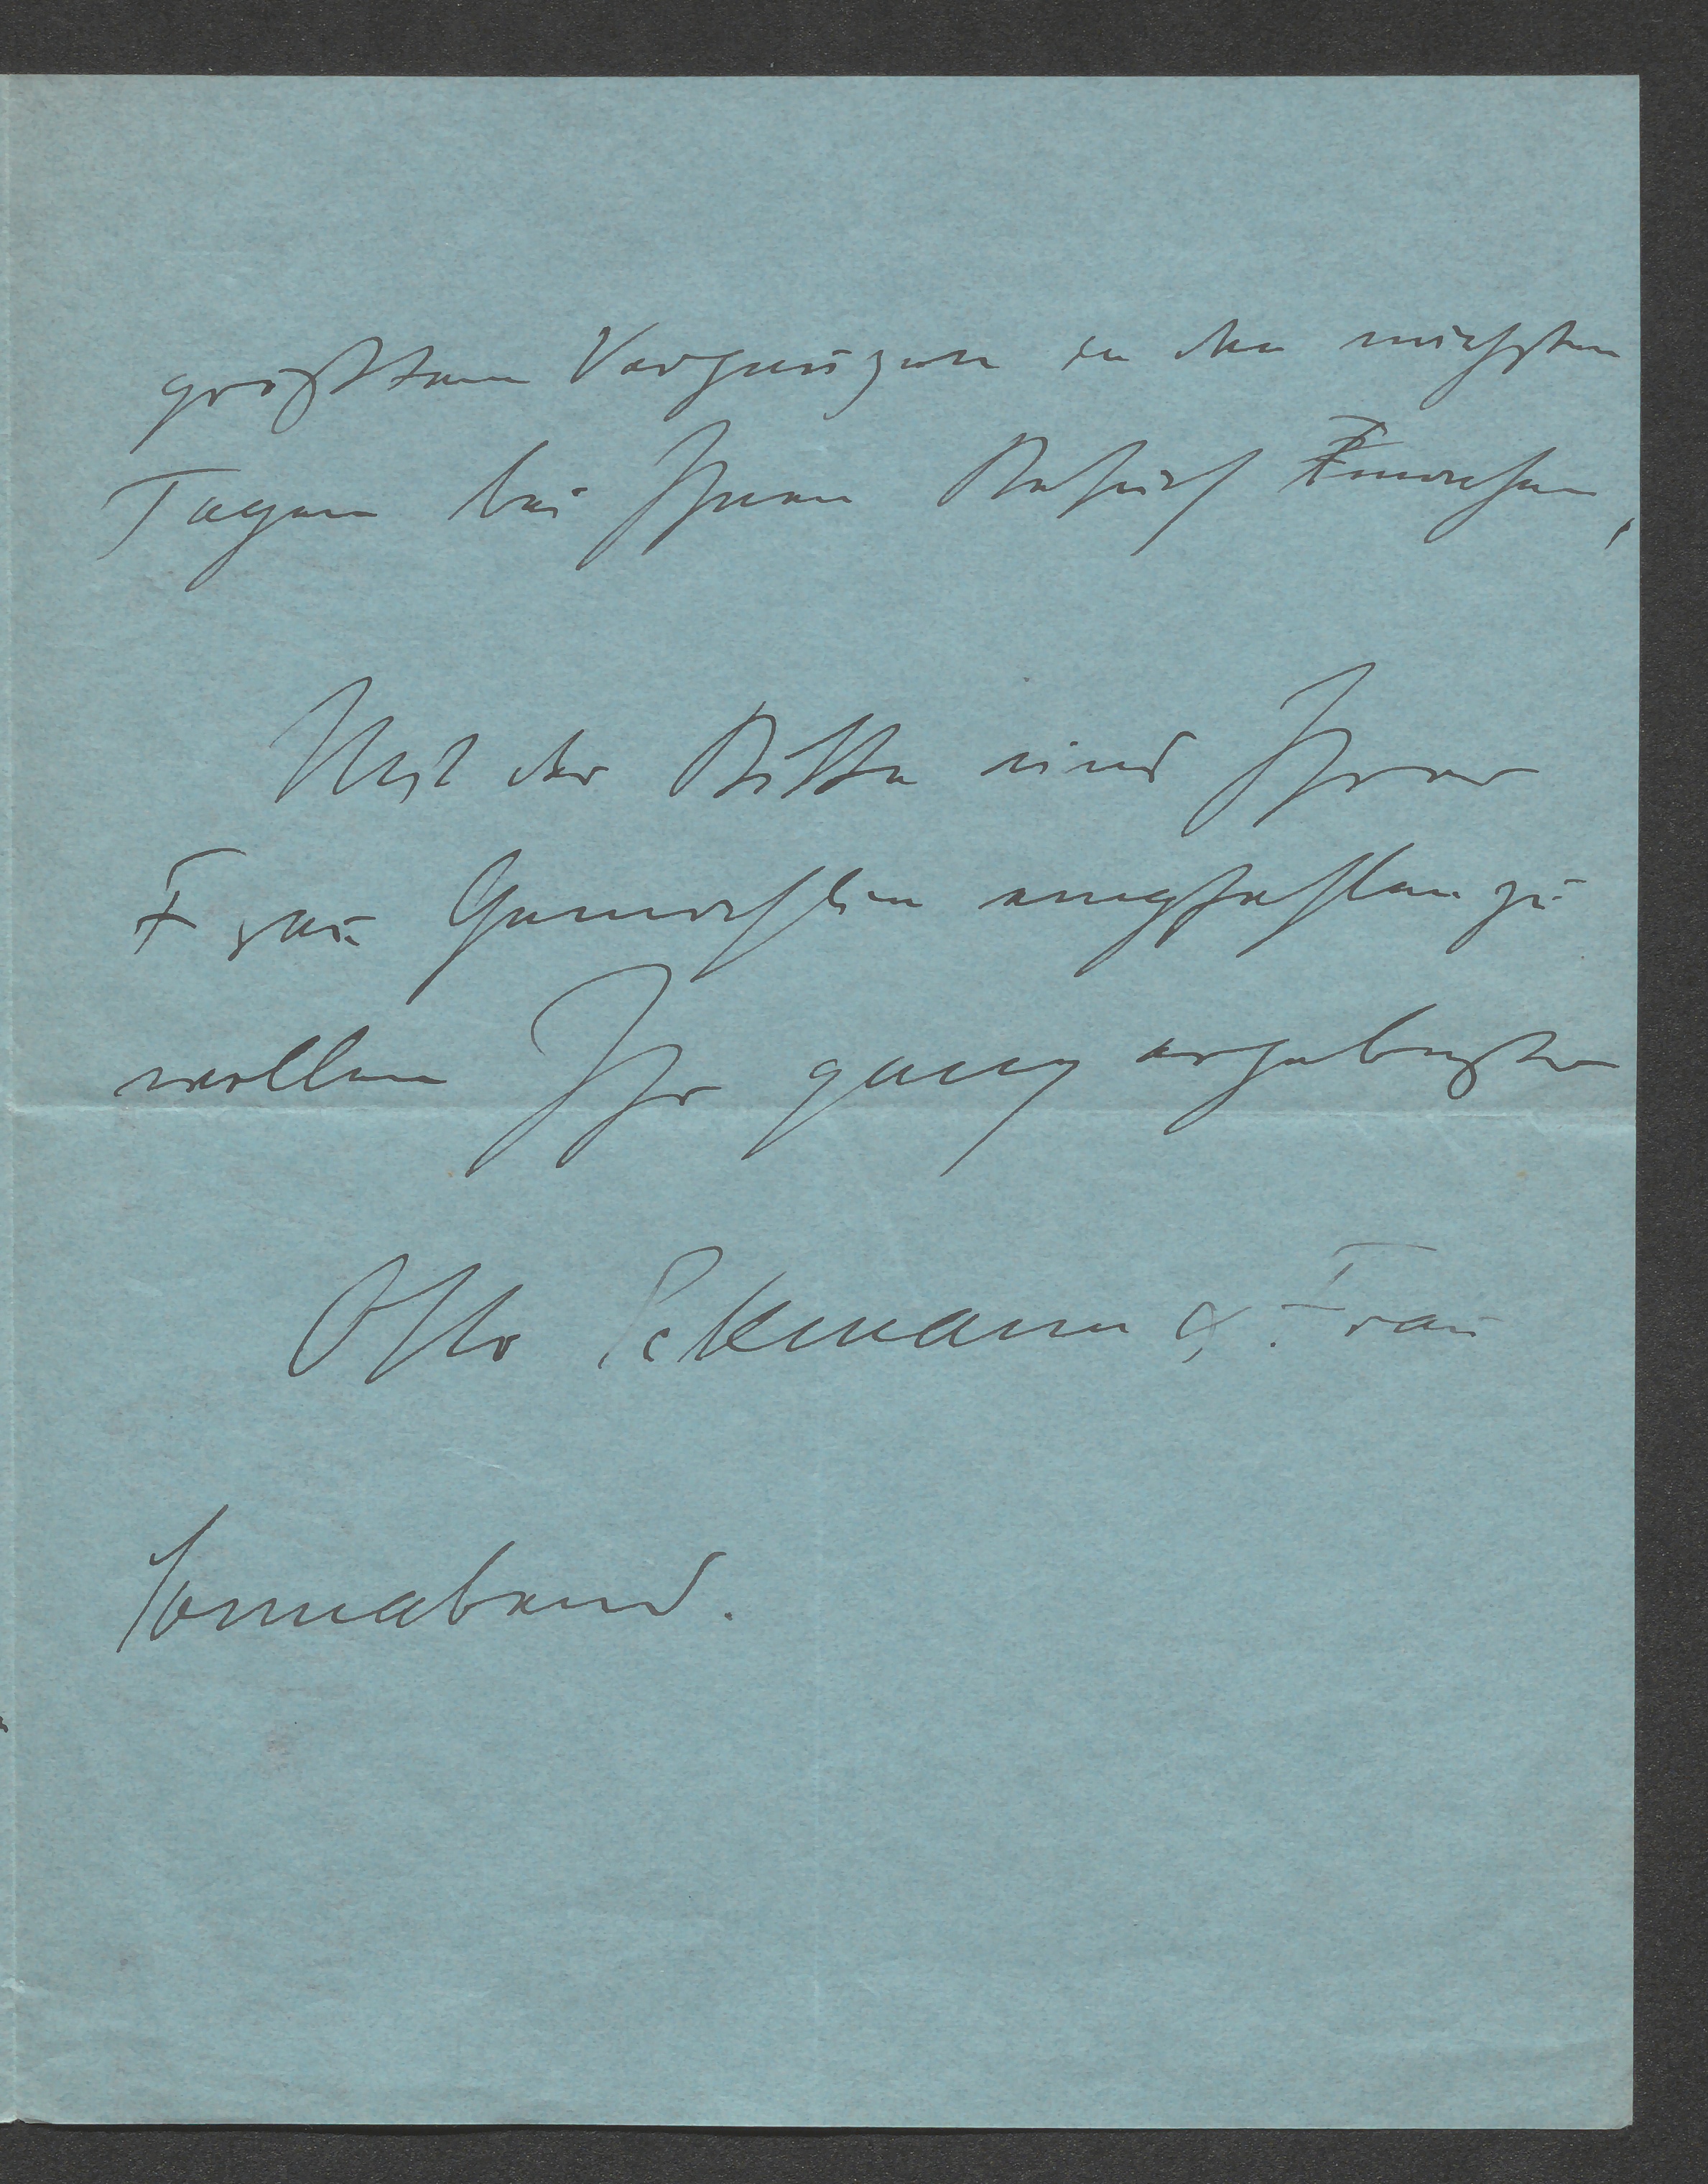 größtem Vergnügen in den nächsten
Tagen bei Ihnen Besuch machen,
Mit der Bitte uns Ihrer
Frau Gemahlin empfehlen zu
wollen Ihr ganz ergebenster
Otto Eckmann & Frau
Sonnabend.